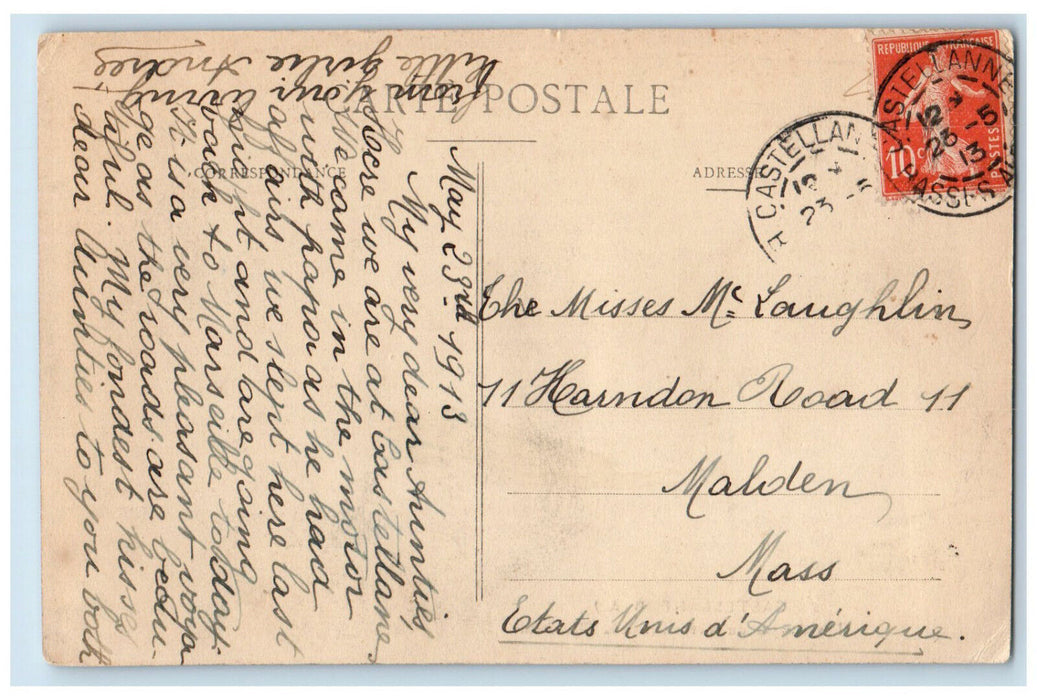 CARTE POSTALE
CORRESPONDANCE
ADRESSE
REPUBLIQUE FRANÇAISE
10 c
POSTES
CASTELLANNE
12
23 -5
13
BASSES
CASTELLAN
12
23 -5
May 23rd 1913
My very dear Aunties
Here we are at Castellanne
We came in the motor
with papa as he had
affairs we slept here last
night and are going
back to Marseille today
It is a very pleasant voya
ge as the roads are beau
tiful. My fondest kisses
dear Aunties to you both
from your loving
little girlie Andrée
The Misses Mc Laughlin
11 Harndon Road 11
Malden
Mass
Etats Unis d'Amérique.